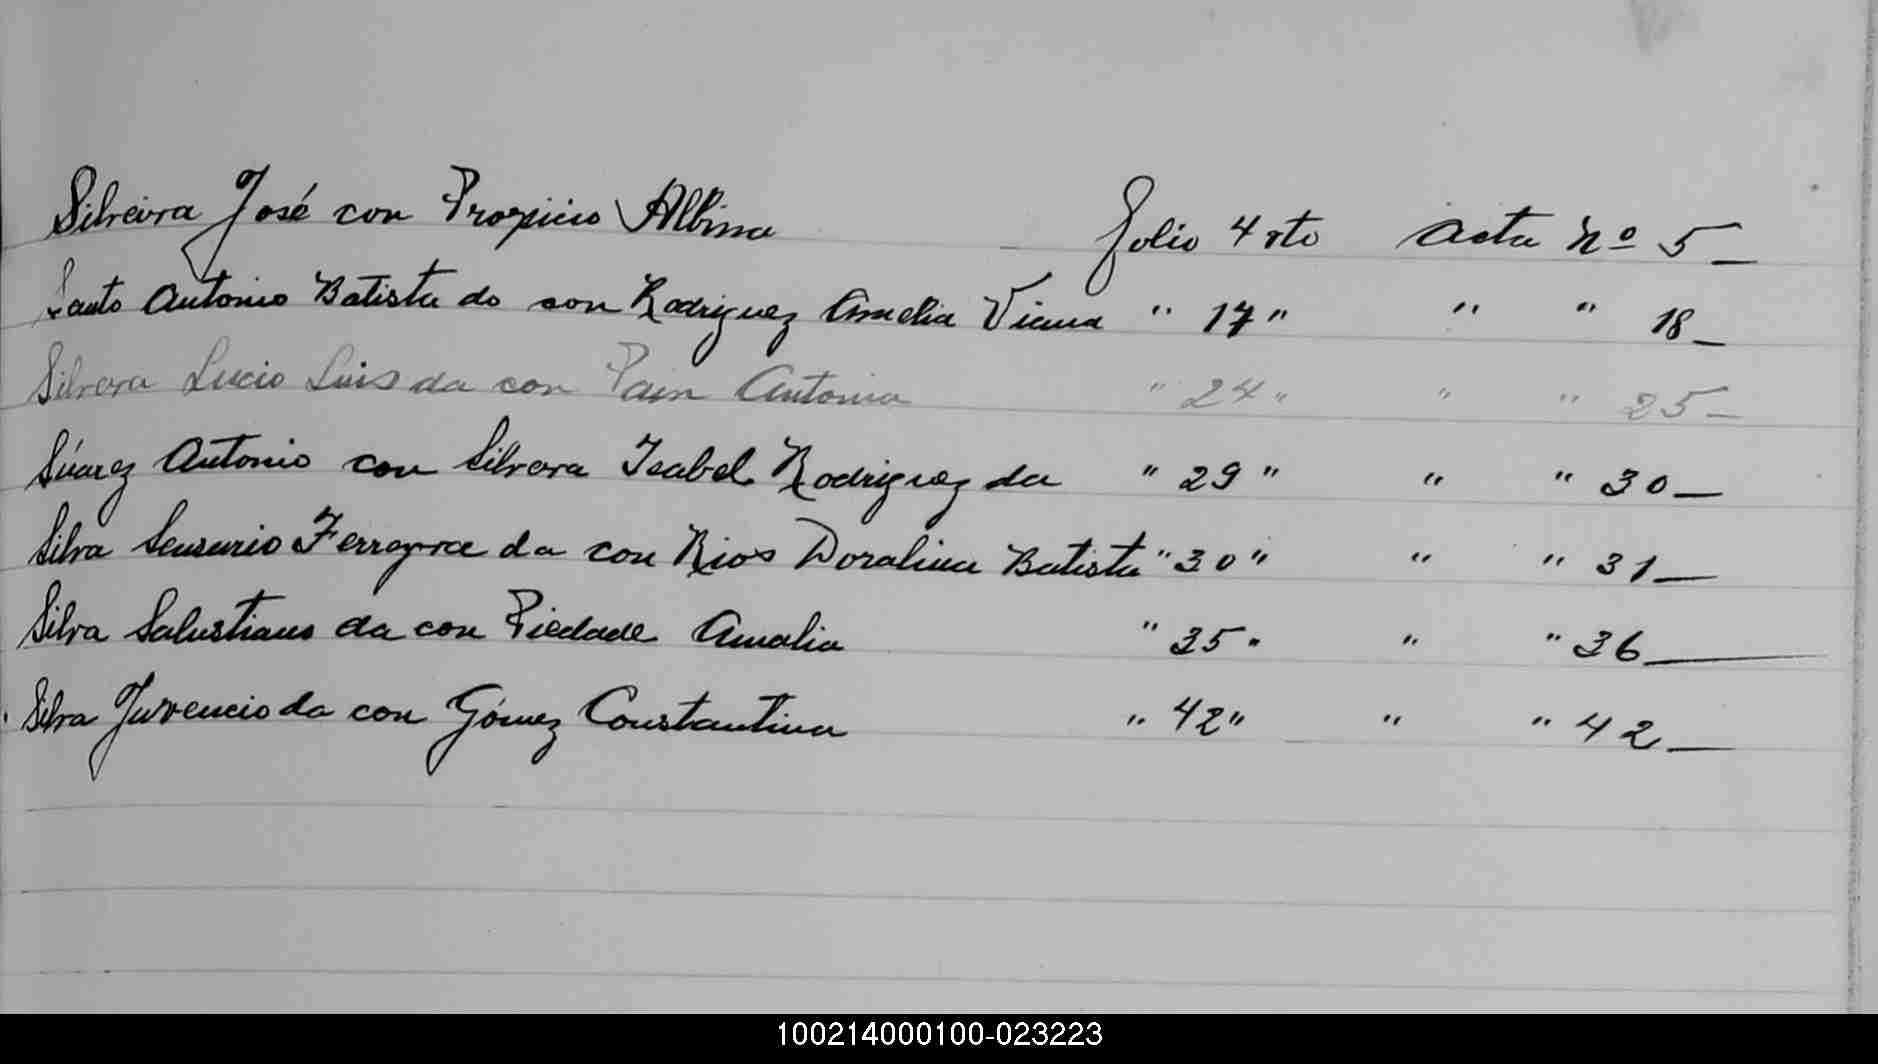 Silveira José con Propicio Albina folio 4 vto acta nº 5_
Santo Antonio Batista do con Rodriguez Amelia Viana " 17 " " " 18_
Silvera Lucio Luis da con Pain Antonia " 24 " " " 25_
Súarez Antonio con Silvera Isabel Rodriguez da " 29 " " " 30_
Silva Ferreyra da con Rios Doralina Batista " 30 " " " 31_
Silva Salustiano da con Piedade Amalia " 35 " " " 36_
Silva Juvencio da con Gómez Constantina " 42 " " " 42_
100214000100-023223